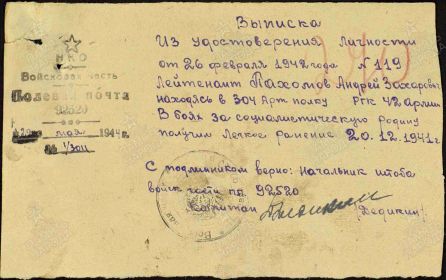 Выписка
Из удостоверения личности
от 26 февраля 1942 года N 119
Лейтенант Пахомов Андрей Захарович
находясь в 304 Арт полку РГК 42 армии
В боях за социалистическую родину
получил легкое ранение 20.12.1941 г
С подлинником верно: Начальник штаба
войск части пп 92520
Капитан (Дедикин)
НКО
Войсковая часть
Полевая почта
92520
мая 1944 г.
№ 1/304